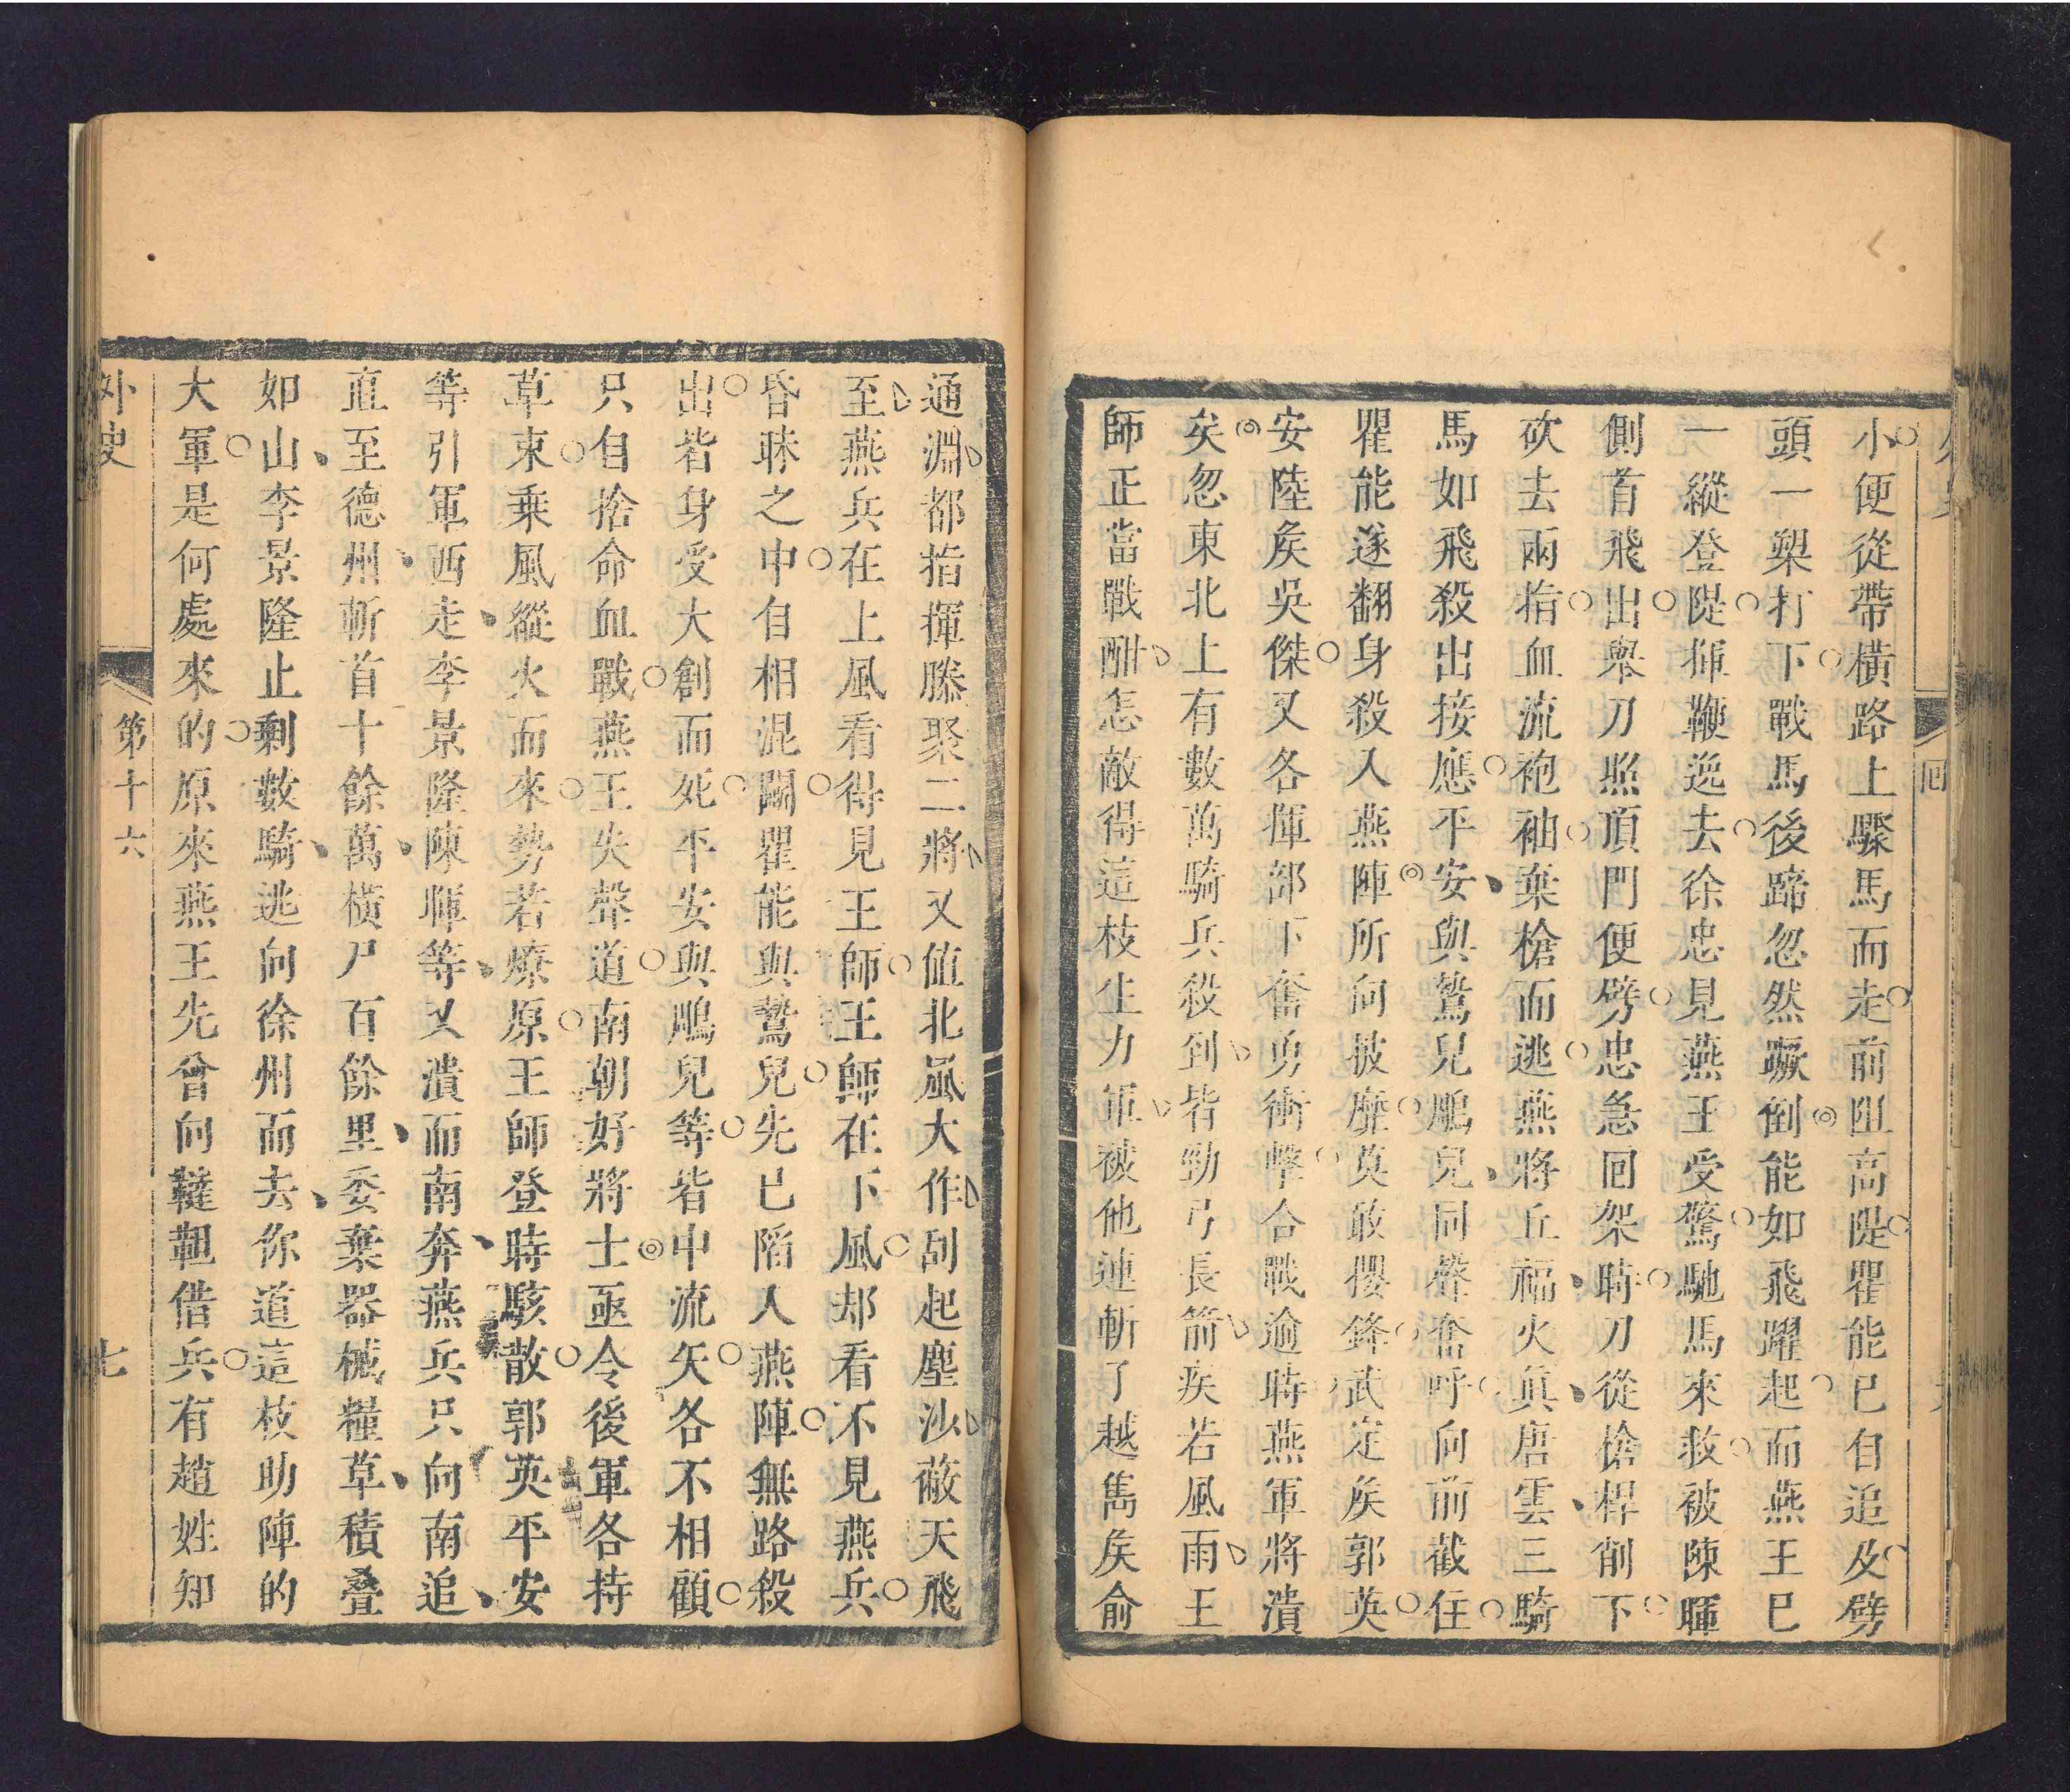 小便從帶橫路上驟馬而走前阻高隄瞿能已自追及劈
頭一槊打下戰馬後蹄忽然蹶倒能如飛躍起而燕王已
一縱登隄揮鞭逸去徐忠見燕王受驚馳馬來救被陳暉
側首飛出舉刀照頂門便劈忠急回架時刀從槍桿削下
砍去兩指血流袍袖棄槍而逃燕將丘福火眞唐雲三騎
馬如飛殺出接應平安與鷙兒鵰兒同聲奮呼向前截住
瞿能遂翻身殺入燕陣所向披靡莫敢攖鋒武定矦郭英
安陸矦吳傑又各揮部下奮勇衝擊合戰逾時燕軍將潰
矣忽東北上有數萬騎兵殺到皆勁弓長箭疾若風雨王
師正當戰酣怎敵得這枝生力軍被他連斬了越雋矦俞
通淵都指揮滕聚二將又值北風大作刮起塵沙蔽天飛
至燕兵在上風看得見王師王師在下風却看不見燕兵
昏眯之中自相混鬬瞿能與鷙兒先已陷入燕陣無路殺
出皆身受大創而死平安與鵰兒等皆中流矢各不相顧
只自捨命血戰燕王失聲道南朝好將士亟令後軍各持
草束乘風縱火而來勢若燎原王師登時駭散郭英平安
等引軍西走李景隆陳暉等又潰而南奔燕兵只向南追
直至德州斬首十餘萬橫尸百餘里委棄器械糧草積疊
如山李景隆止剩數騎逃向徐州而去你道這枝助陣的
大軍是何處來的原來燕王先曾向韃靼借兵有趙姓知
外史
第十六
七